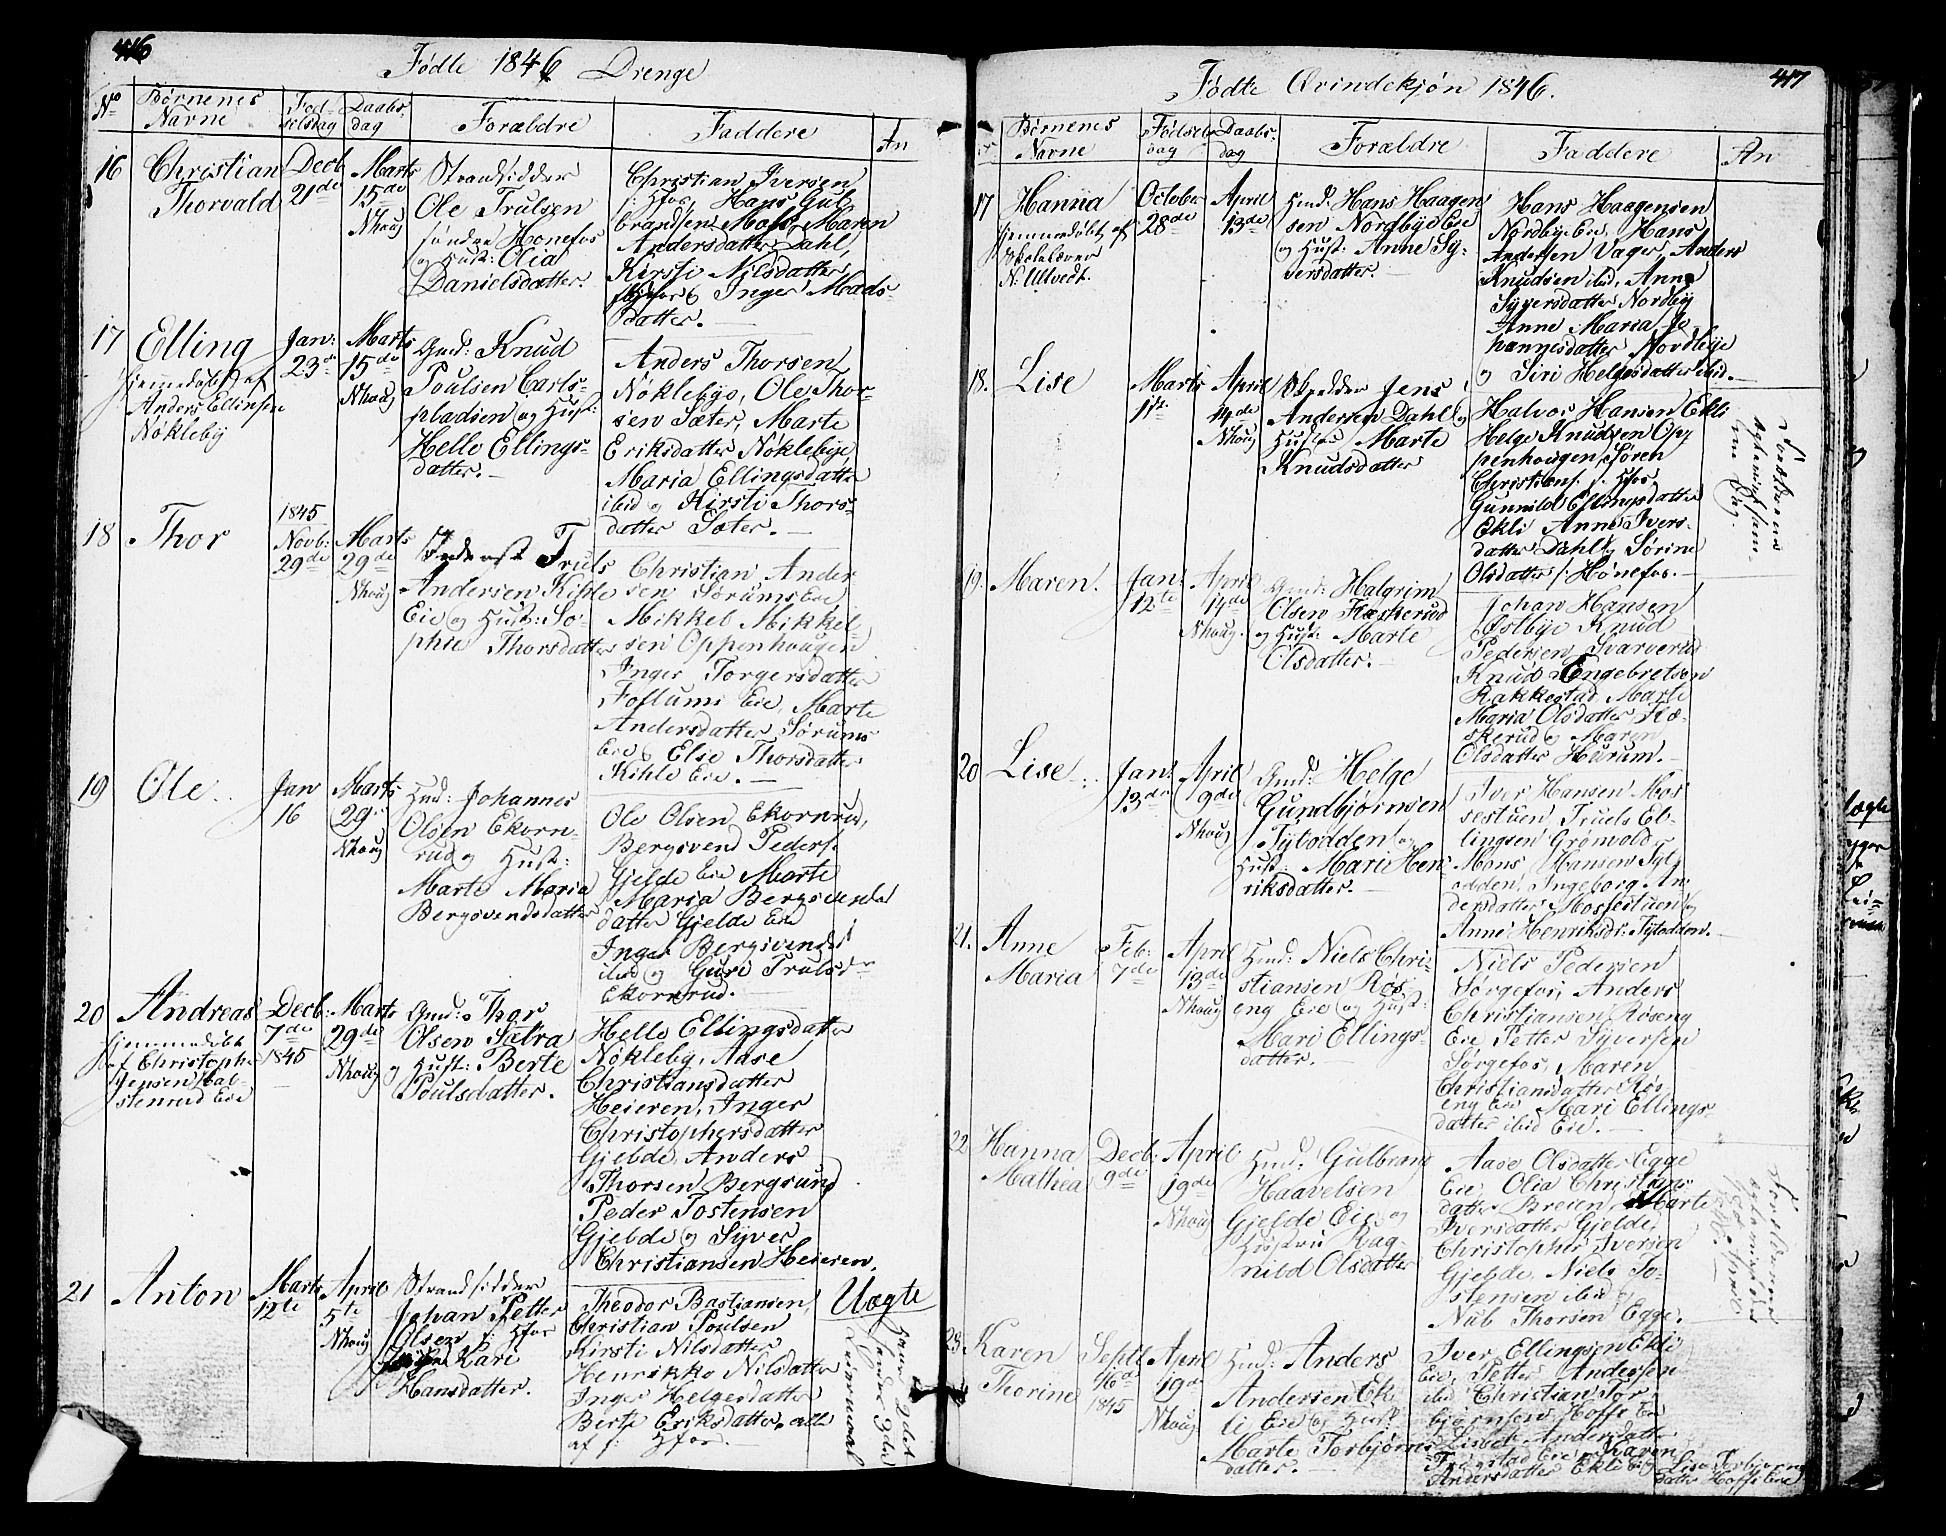 416
Fødte 1846 Drenge
No
Børnenes Navne
Fødselsdag
Daabsdag
Forældre
Faddere
An
16
Christian
Thorvald
Decb
21de
Marts
15de
Nhoug
Strandsidder
Ole Trulsen
søndre Hønefos
og Hust: Olia
Danielsdatter.
Christian Iversen
s: Hfos, Hans Gul
brandsen Mo Maren
Andersdatter Dahl,
Kirsti Nilsdatter
Hfos og Inger Mads-
datter.
17
Elling
hjemmedøbt af
Anders Ellinsen
Nøkleby
Jan:
23de
Marts
15de
Nhoug
Gmd: Knud
Poulsen Carls-
pladsen og Hust:
Helle Ellings-
datter.
Anders Thorsen
Nøklebye, Ole Thor-
sen Sæter, Marte
Eriksdatter Nøklebye,
Maria Ellingsdatter
ibid og Kirsti Thors-
datter Sæter.
18
Thor
1845
Novb:
29de
Marts
29de
Nhoug
Inderst Truls
Andersen Kihle
Eie og Hust: So-
phie Thorsdatter
Christian Ander
sen Sørums Eie
Mikkel Mikkel-
sen Oppenhougen
Inger Torgersdatter
Follums Eie, Marte
Andersdatter Sørums
Eie og Else Thorsdatter
Kihle Eie.
19
Ole
Jan
16
Marts
29de
Nhoug
Hmd: Johannes
Olsen Ekorn-
rud og Hust:
Marte Maria
Bergsvendsdatter
Ole Olsen Ekornrud,
Bergsvend Peders.
Gjelde Eie Marte
Maria Bergsvends
datter Gjelde Eie
Inger Bergsvendsd
ibid og Guri Trulsdr
Ekornrud.
20
Andreas
hjemmedøbt
af Christopher
Jensen Hal-
stenrud Eie
Decb:
7de
1845
Marts
29de
Nhoug
Gmd: Thor
Olsen Sætra
og Hust: Berte
Poulsdatter.
Helle Ellingsdatter
Nøkleby, Aase
Christiansdatter
Heieren, Inger
Christophersdatter
Gjelde, Anders
Thorsen Bergsund
Peder Tostensen
Gjelde og Syver
Christiansen Heieren.
21
Anton
Marts
12te
April
5te
Nhoug
Strandsidder
Johan Petter
Olsen s: Hfos
Kari
Hansdatter.
Theodor Bastiansen,
Christian Poulsen
Kirsti Nilsdatter
Henrikke Nilsdatter
Inger Helgesdatter
Berte Eriksdatter, alle
af s: Hfos.
Uægte
Leiermaal
417
Fødte Qvindekjøn 1846.
Børnenes Navne
Fødselsdag
Daabsdag
Forældre
Faddere
An
17
Hanna
hjemmedøbt af
Skolelærer
N: Ultvedt.
October
28de
April
13de
Hmd: Hans Haagen
sen Nordbye Eie
og Hust: Anne Sy-
versdatter.
Hans Haagensen
Nordbye Eie, Hans
Andersen Vager, Anders
Knudsen ibid, Anne
Syversdatter Nordby
Anne Maria Jo
hannesdatter Nordbye
og Siri Helgesdatter ibid.
18.
Lise
Marts
11te
April
14de
Nhoug
Jens
Andersen Dahl og
Hustru Marte
Knudsdatter
Halvor Hansen Ekli
Helge Knudsen Opp
penhougen, Søren
Christians. s. Hfos,
Gunnild Ellingsdatter
Ekli Anne Ivers-
datter Dahl og Sørine
Olsdatter s: Hønefos.
19.
Maren.
Jan:
12te
April
14de
Nhoug
Gmd: Halgrim
Olsen Fleskerud
og Hust: Marte
Olsdatter.
Johan Hansen
Østbye Knud
Pedersen Svarverud
Knud Engebretsen
Rakkestad Marte
Maria Olsdatter
skerud og Maren
Olsdatter Hurum.
20
Lise
Jan:
13de
April
9de
Nhoug
Gmd: Helge
Gundbjørnsen
Tytodden og
Hust: Mari Hen
riksdatter.
Iver Hansen Mos
sestuen, Truls El-
lingsen Grønvold
Mons Hansen Tyt
odden, Ingeborg An
dersdatter Mossestuen og
Anne Henriksdr. Tytodden.
21.
Anne
Maria
Feb:
7de
April
13de
Nhoug
Hmd: Niels Chri-
stiansen Røs
eng Eie og Hust:
Mari Ellings-
datter.
Niels Pedersen
Sørgefos, Anders
Christiansen Røseng
Eie Petter Syversen
Sørgefos, Maren
Christiansdatter Røs
eng Eie Mari Ellings-
datter ibid Eie.
22
Hanna
Mathea
Decb:
9de
April
19de
Nhoug
Hmd: Gulbrand
Haavelsen
Gjelde Eie og
Hustru Rag-
nild Olsdatter
Aase Olsdatter Egge
Eie Olia Christians-
datter Breien, Marte
Iversdatter Gjelde,
Christopher Iversen
Gjelde, Niels To-
stensen ibid og
Nub Thorsen Egge.
23.
Karen
Thorine
Septb
16de
1845
April
19de
Nhoug
Hmd: Anders
Andersen Ek-
li Eie og Hust:
Marte Torbjørns
datter.
Iver Ellingsen Ekli
Eie, Petter Andersen
ibid Christian Tor-
bjørnsen Hoffs Eie
Lisbet Andersdatter
Tragstad Eie, Karen
Andersdatter Ekli Eie og Lise Torbjørns
datter Hoffs Eie